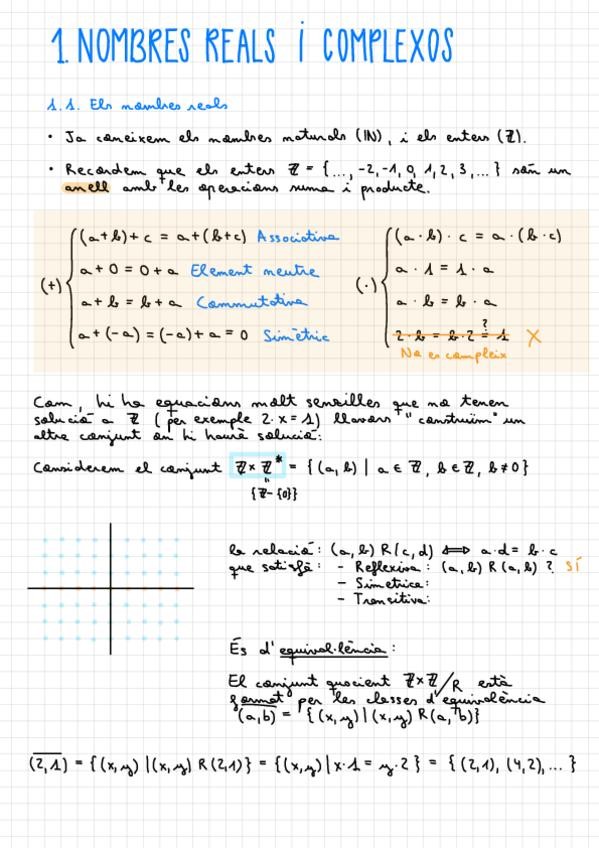 1. NOMBRES REALS I COMPLEXOS
1.1. Els nombres reals
• Ja coneixem els nombres naturals (ℕ), i els enters (ℤ).
• Recordem que els enters ℤ = {..., -2, -1, 0, 1, 2, 3, ...} són un
anell amb les operacions suma i producte.
(+) { (a+b)+c = a+(b+c) Associativa
a+0 = 0+a Element neutre
a+b = b+a Commutativa
a+(-a) = (-a)+a = 0 Simètric
(·) { (a·b)·c = a·(b·c)
a·1 = 1·a
a·b = b·a
2·b = b·2 ?= 1 X
No es compleix
Com, hi ha equacions molt senzilles que no tenen
solució a ℤ (per exemple 2·x = 1) llavors "construïm" un
altre conjunt on hi haurà solució:
Considerem el conjunt ℤ×ℤ* = {(a,b) | a∈ℤ, b∈ℤ, b≠0}
"
{ℤ-{0}}
la relació: (a,b) R (c,d) ⟺ a·d = b·c
que satisfà: - Reflexiva: (a,b) R (a,b) ? SÍ
- Simetrica:
- Transitiva:
És d'equival·lència:
El conjunt quocient ℤ×ℤ/R està
format per les classes d'equivalència
(a,b) = {(x,y) | (x,y) R (a,b)}
(2,1) = {(x,y) | (x,y) R (2,1)} = {(x,y) | x·1 = y·2} = {(2,1), (4,2), ...}